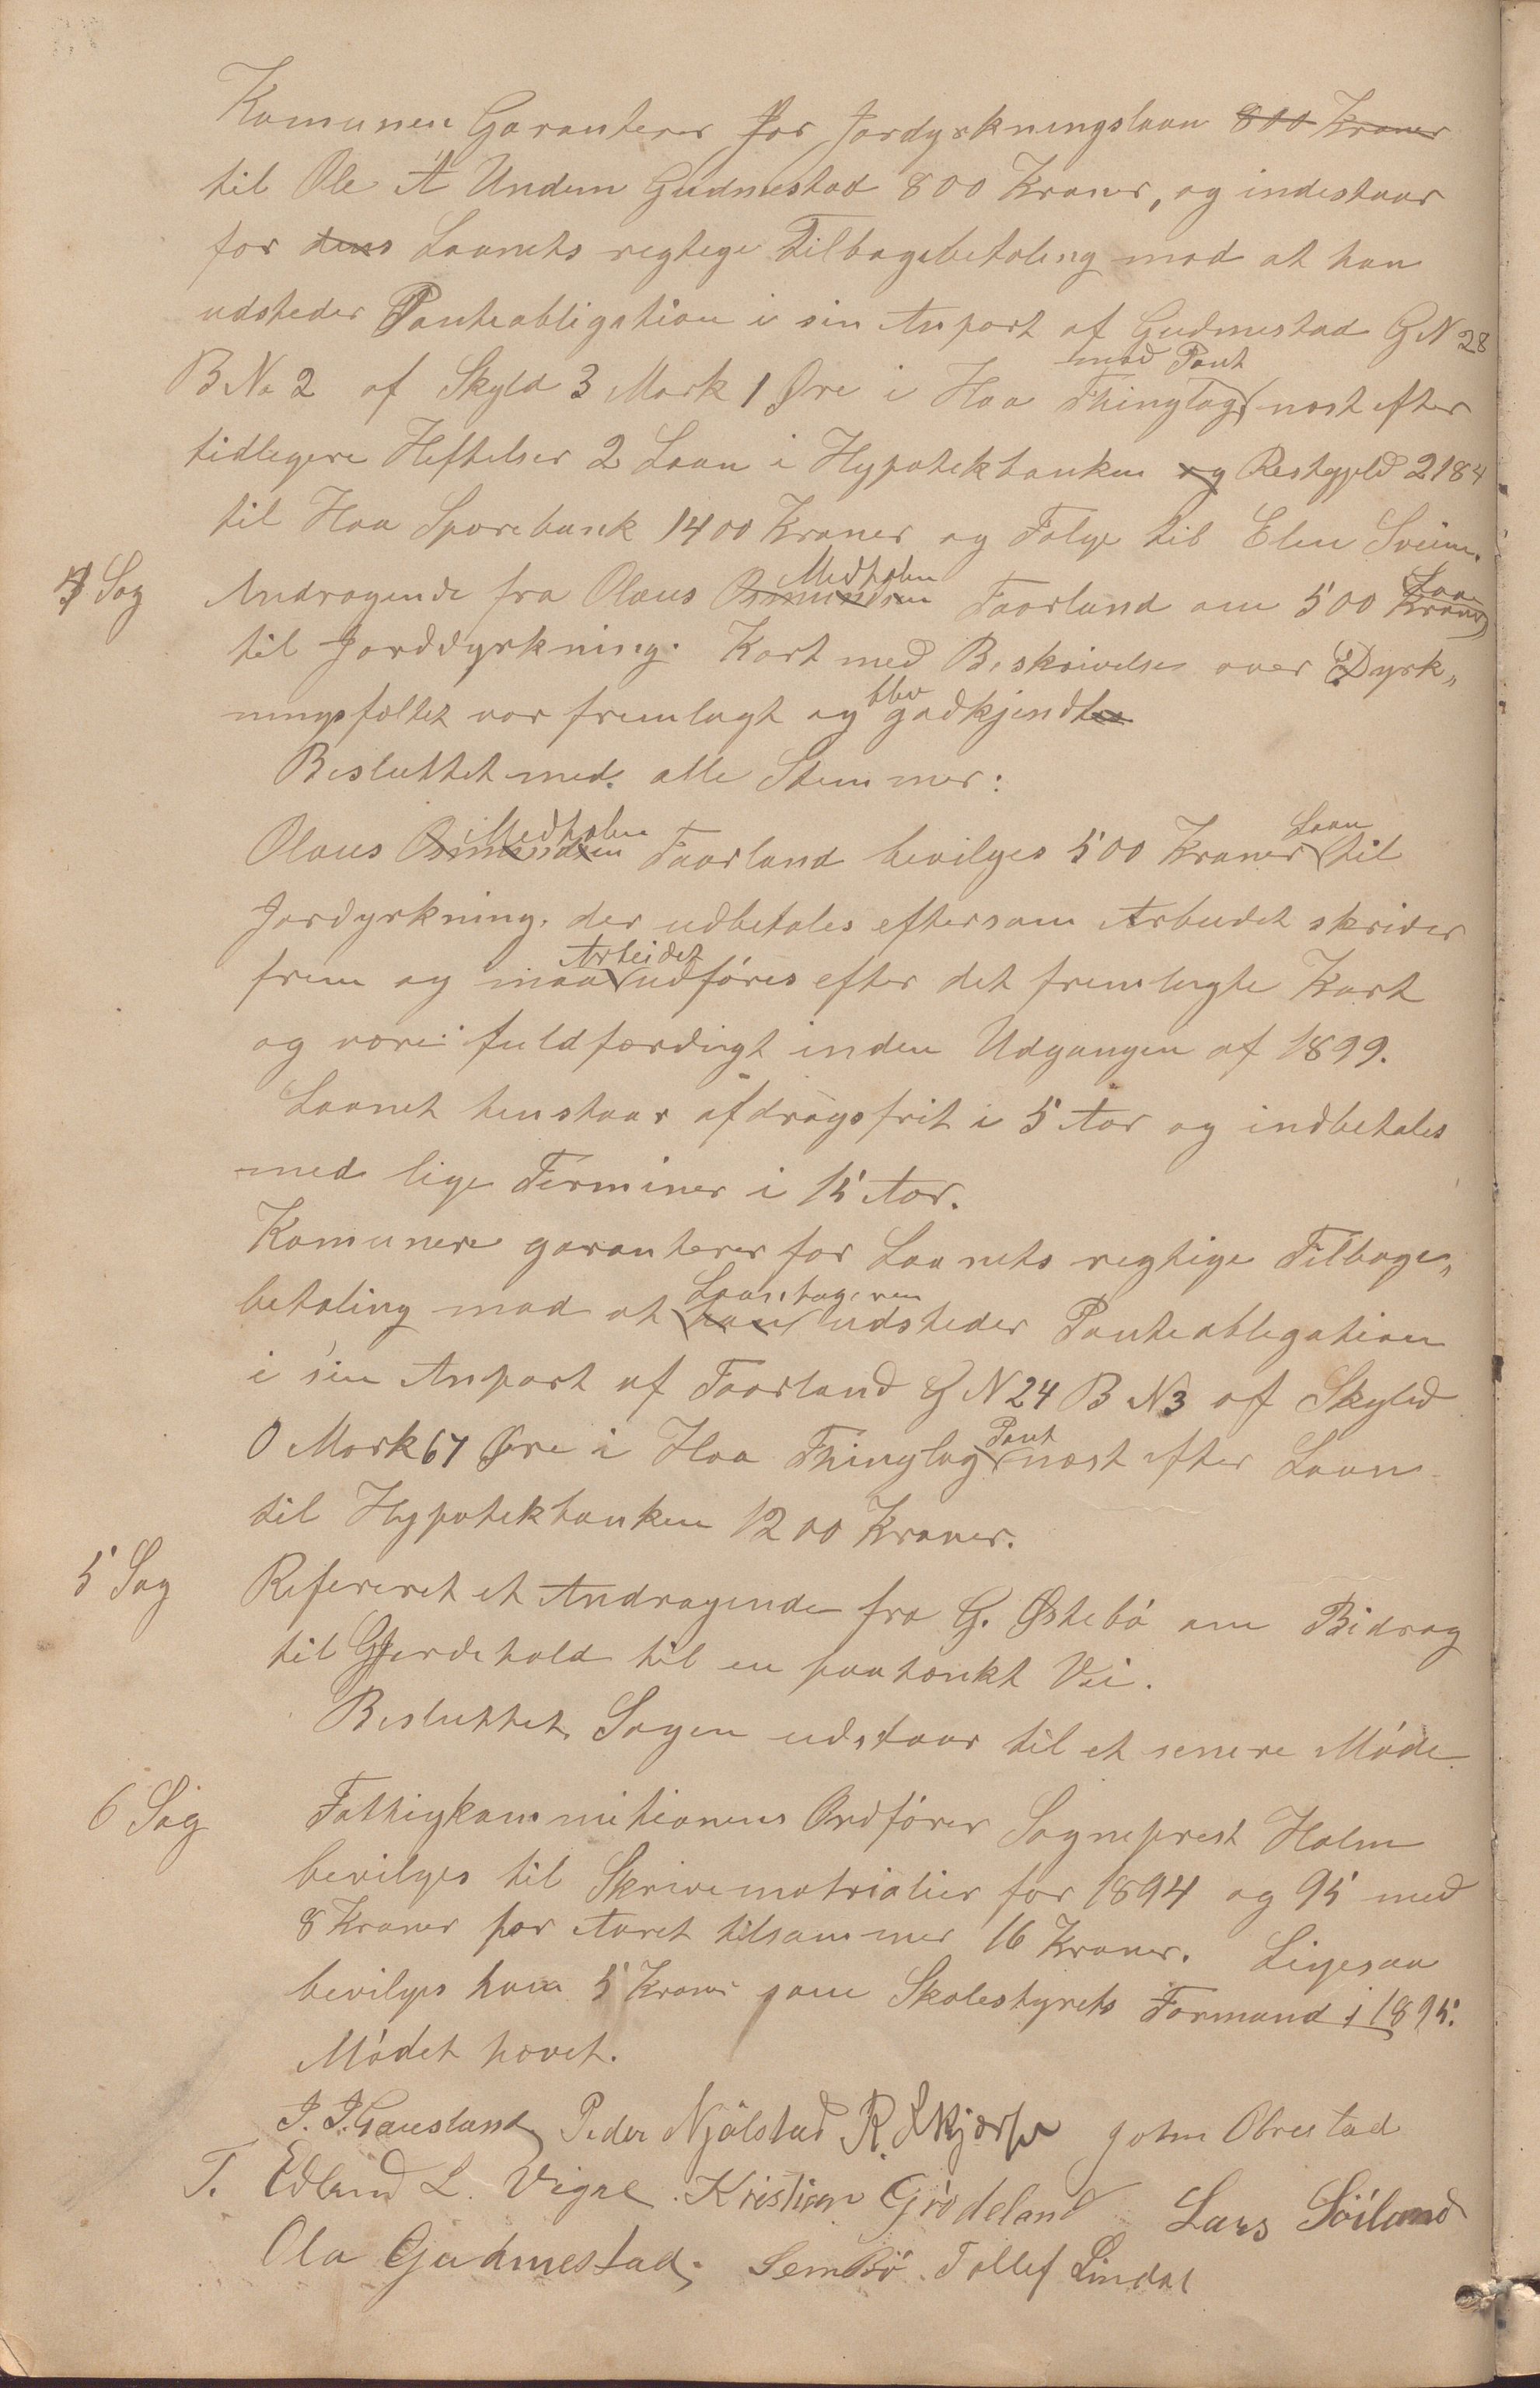 Komunen Garanterer for Jordyrkningslaan 800 Kroner
til Ole A Undem Gudmestad 800 Kroner, og indestaar
for dens Laanets regtege Tilbagebetaling mod at han
udsteder Panteobligation i sin Anpart af Gudmestad G N 28
mod Pant
B No 2 af Skyld 3 Mark 1 Øre i Haa Thinglag næst efter
tidlegere Heftelser 2 Laan i Hypotekbanken og Restgjeld 2184
til Haa Sparebank 1400 Kroner og Følge til Elen Svein.
Medholen Laan
4 Sag Andragende fra Olaus Osmundsen Taarland om 500 Kroner
til Jorddyrkning. Kart med Beskrivelse over Dyrk„
blev
ningsfeltet var fremlagt og godkjendtes
Besluttet med alle Stemmer:
Medholen Laan
Olaus Osmundsen Taarland bevilges 500 Kroner til
Jordyrkning. der udbetales eftersom Arbeidet skrider
Arbeidet
frem og maa udføres efter det fremlagte Kart
og være fuldfærdigt inden Udgangen af 1899.
Laanet henstaar afdragsfrit i 5 Aar og indbetales
med lige Terminer i 15 Aar.
Komunen garanterer for Laanets regtige Tilbage„
Laantageren
betaling mod at han udsteder Panteobligation
i sin Anpart af Taarland G N 24 B N 3 af Skyld
Pant
0 Mark 67 Øre i Haa Thinglag næst efter Laan
til Hypotekbanken 1200 Kroner.
5 Sag Refereret et Andragende fra G. Østebø om Bidrag
til Gjerdehold til en paatænkt Vei.
Besluttet Sagen udstaar til et senere Møde
6 Sag Fattigkommitionens Ordfører Sogneprest Holm
bevilges til Skrivematrialier for 1894 og 95 med
8 Kroner per Aaret tilsammer 16 Kroner. Ligesaa
bevilges ham 5 Kroner som Skolestyrets Formand i 1895.
Mødet hævet.
J. J. Gausland Peder Njålstad R. Skjærpe John Obrestad
T. Edland L. Vigre. Kristian Grødeland Lars Søiland
Ola Gudmestad. Sem Bø. Tollef Lindal